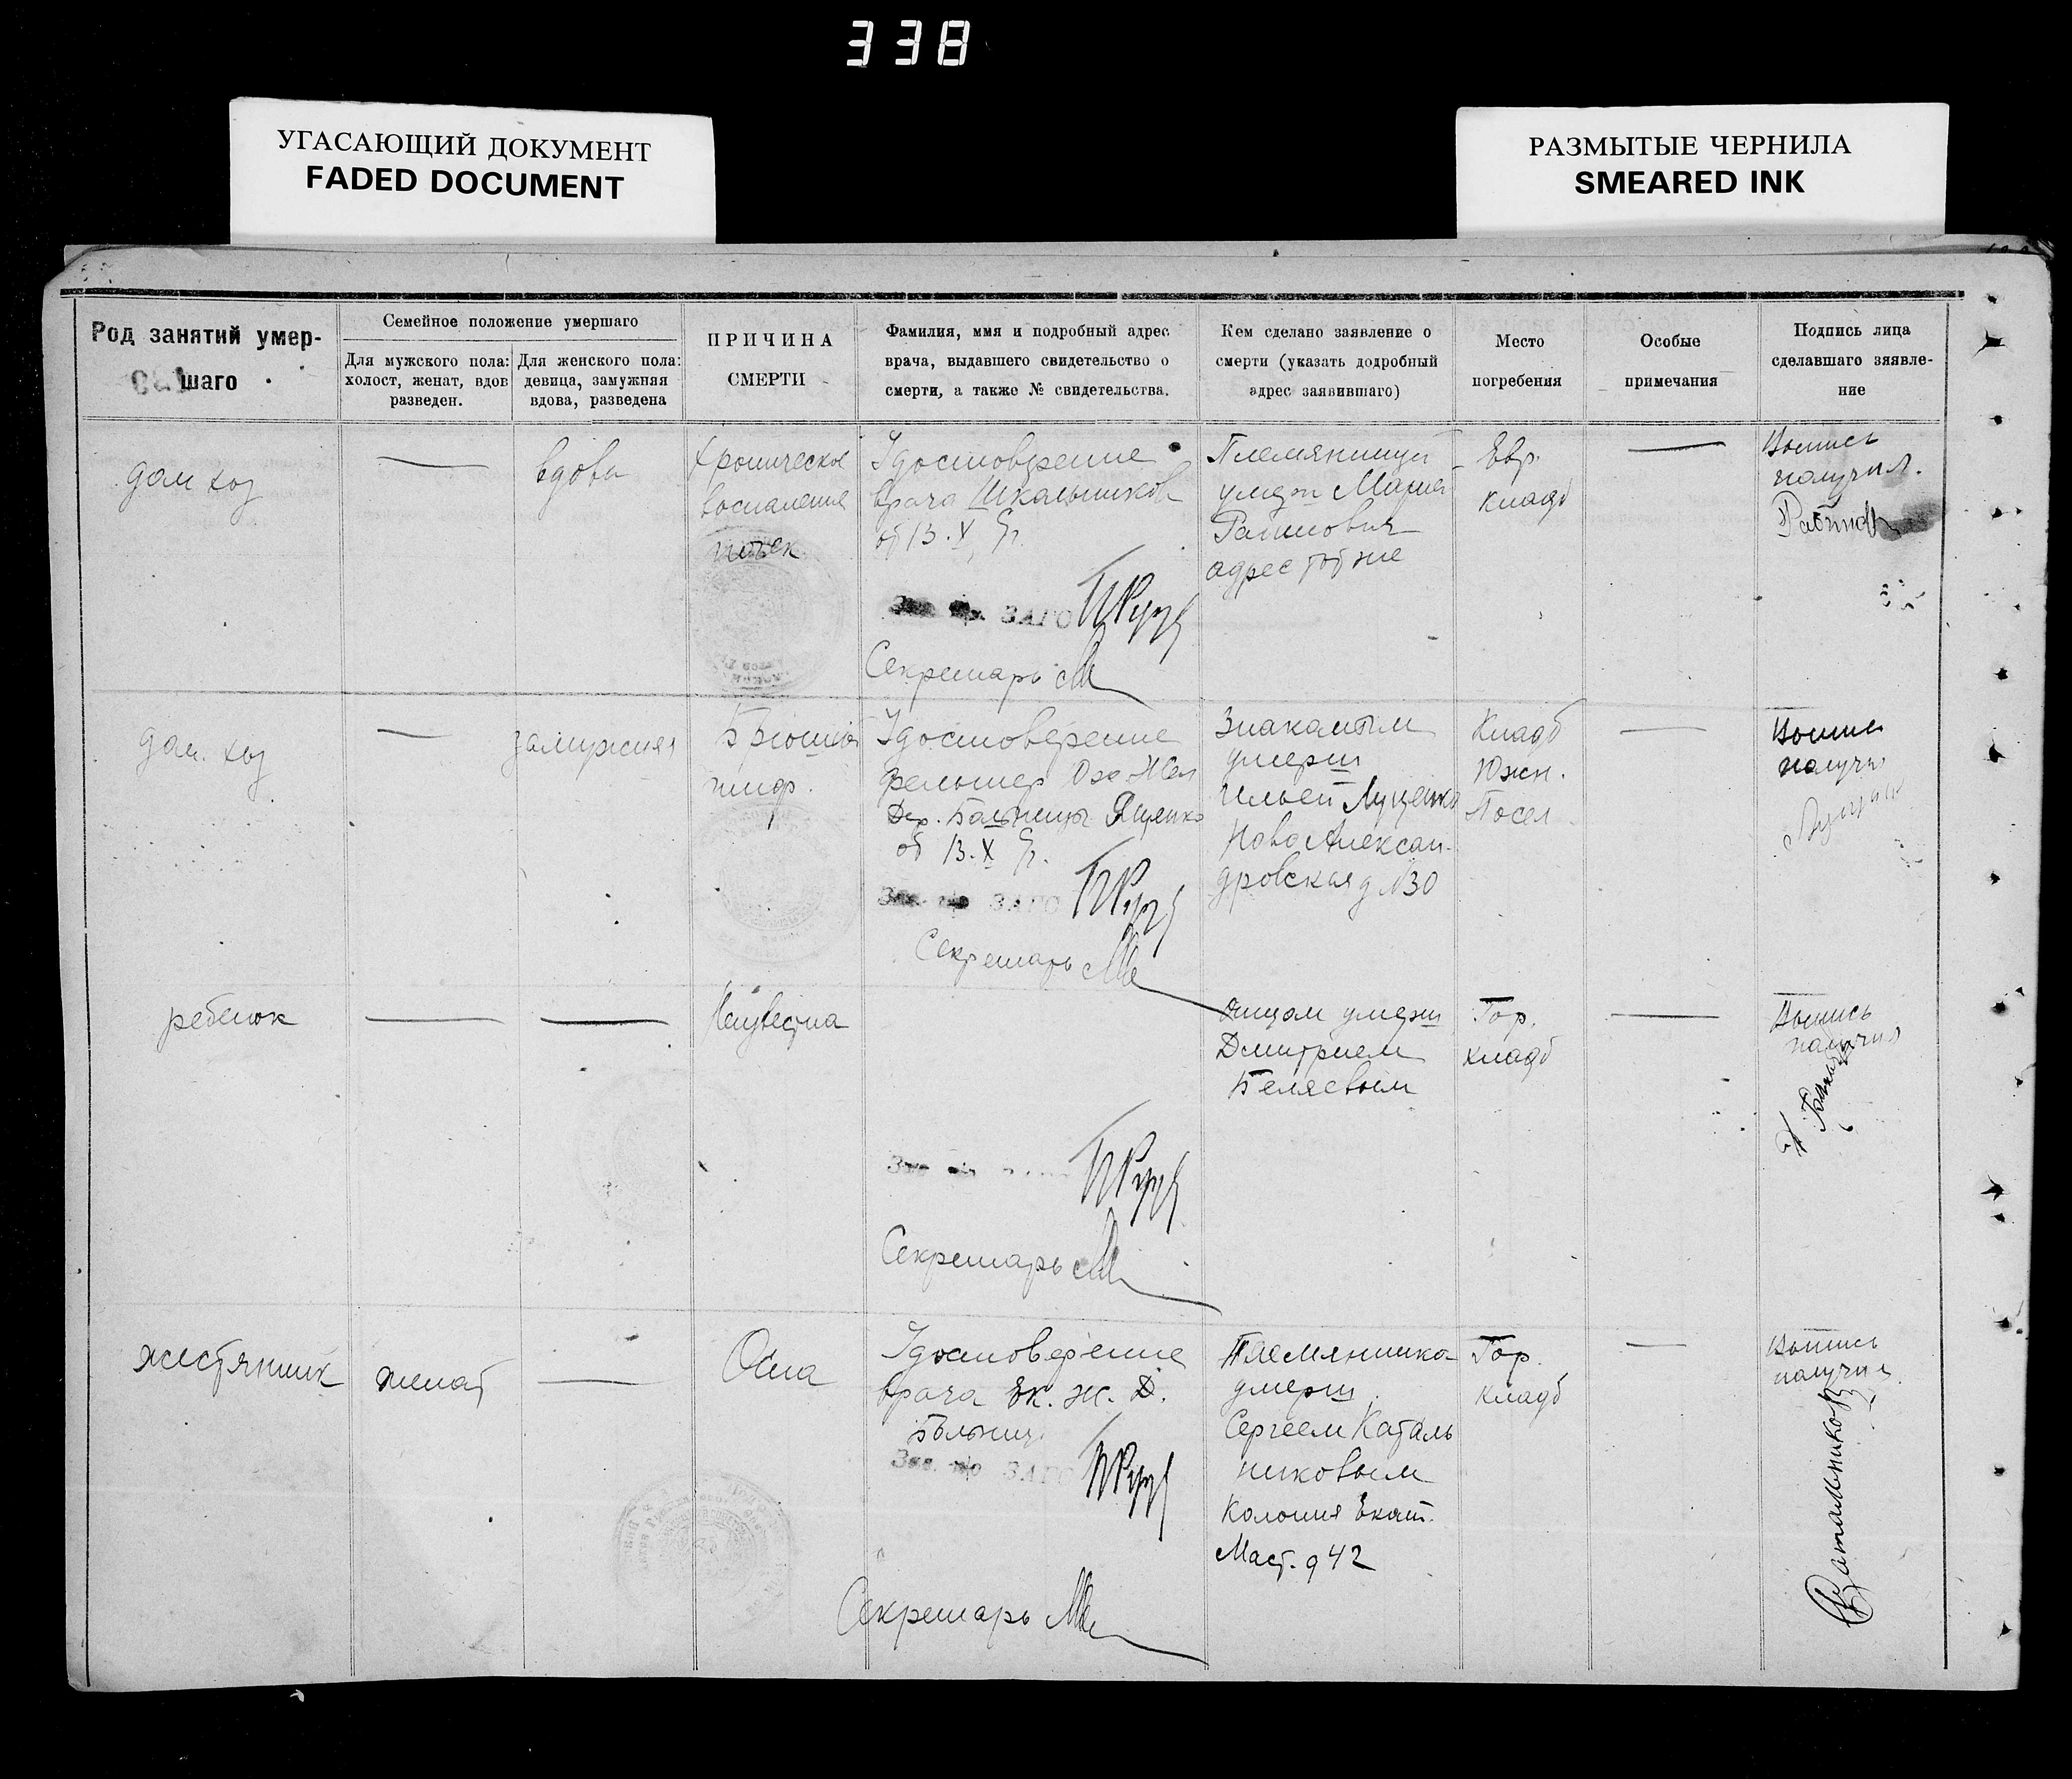 338
УГАСАЮЩИЙ ДОКУМЕНТ
FADED DOCUMENT
РАЗМЫТЫЕ ЧЕРНИЛА
SMEARED INK
Род занятий умер-
шаго
Семейное положение умершаго
Для мужского пола:
холост, женат, вдов
разведен.
Для женского пола:
девица, замужняя
вдова, разведена
ПРИЧИНА
СМЕРТИ
Фамилия, имя и подробный адрес
врача, выдавшего свидетельство о
смерти, а также № свидетельства.
Кем сделано заявление о
смерти (указать додробный
адрес заявившаго)
Место
погребения
Особые
примечания
Подпись лица
сделавшаго зяявле-
ние
дом хоз
—
вдова
Хроническое
воспаление
почек
Удостоверение
врача Школьников
от 13.X
ЗАГС
Секретарь
Племянницей
Мария
адрес тот же
Евр.
кладб
—
Выпись
получил.
дом. хоз
—
замужняя
Брюшной
тиф.
Удостоверение
фельшер
Больницы Яценко
от 13.X
ЗАГС
Секретарь
Знакомым
умерш
Ильей Луценко
Ново Алексан-
дровская д №30
Кладб
Южн.
Посел
—
Выпись
получил
ребенок
—
—
Неизвестна
Секретарь
Отцом умерш
Дмитрием
Беляевым
Гор.
кладб
—
Выпись
получил
жестяник
женат
—
Оспа
Удостоверение
врача Ек. ж. д.
Больниц
ЗАГС
Секретарь
Племянником
умерш.
Сергеем Каталь
никовым
Колония Екат.
Маст. д 42
Гор.
кладб
—
Выпись
получил.
Катальников